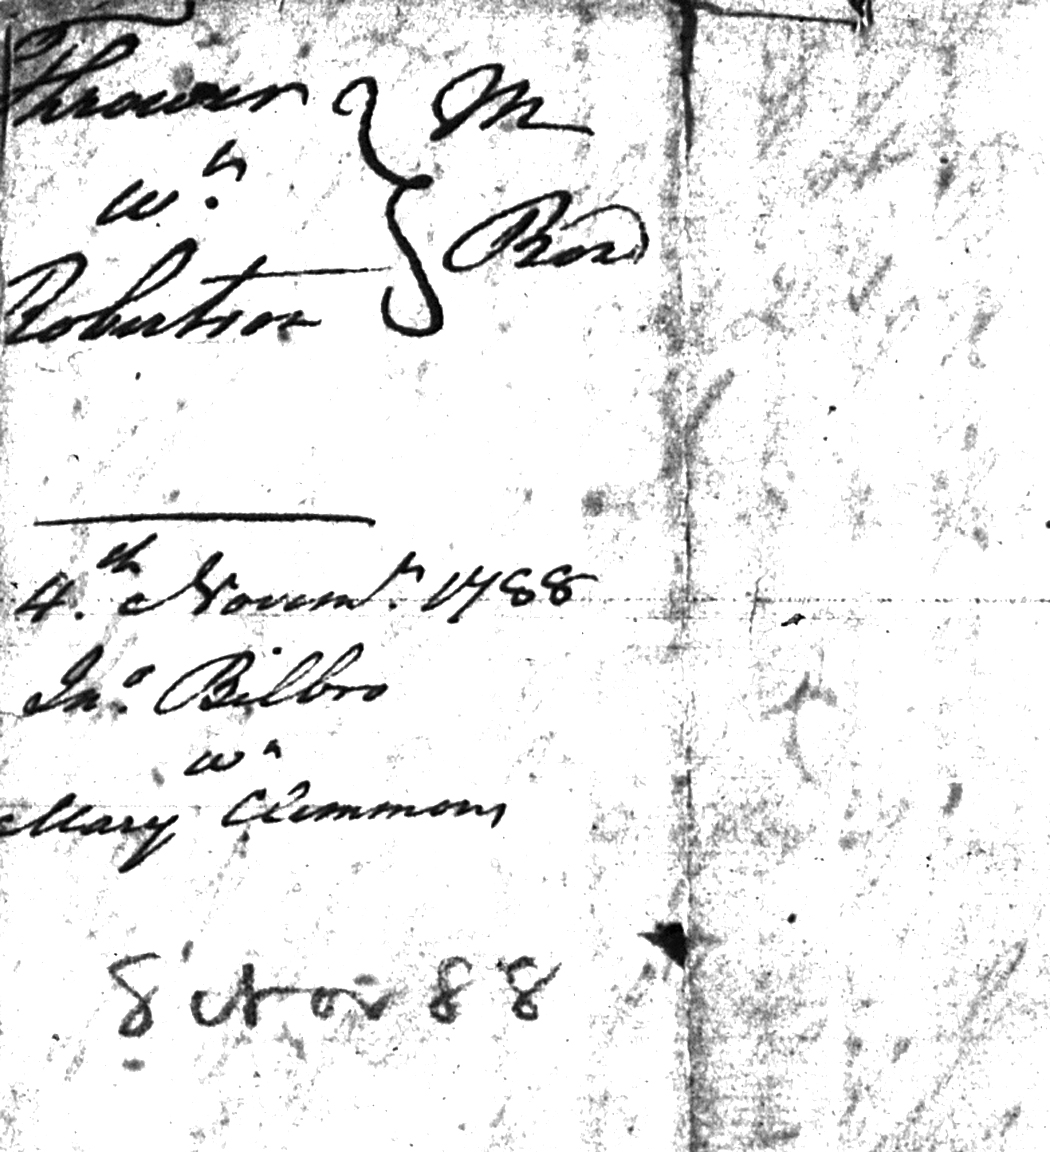 Thrower } M
wh
Robertson } Bond
4.th Novemr. 1788
Jno. Bilbro
wh
Mary Clemmons
8 Nov 88